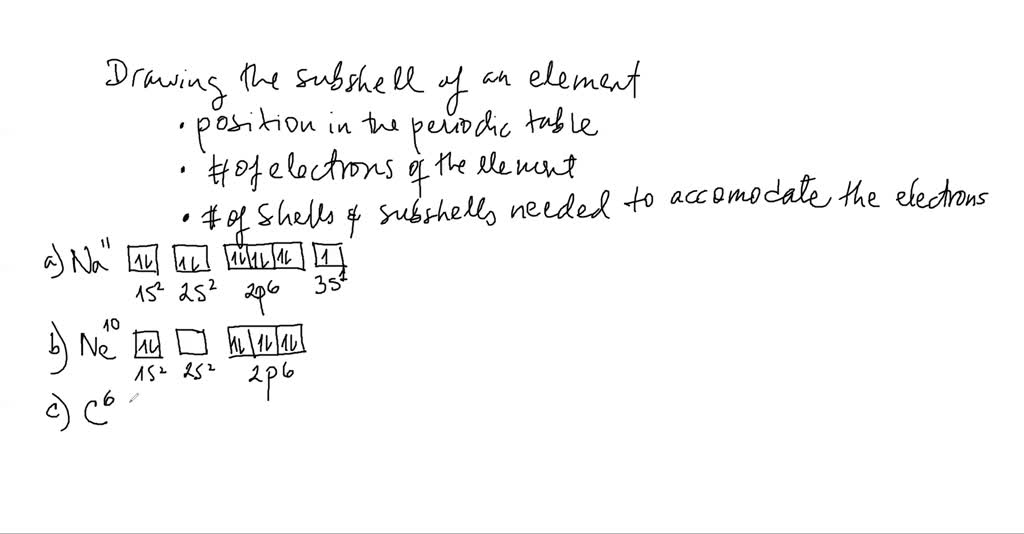 Drawing the subshell of an element
• position in the periodic table
• # of electrons of the element
• # of shells & subshells needed to accomodate the electrons
a) Na¹¹ 1L 1L 1L 1L 1L 1
1s² 2s² 2p⁶ 3s¹
b) Ne¹⁰ 1L 1L 1L 1L
1s² 2s² 2p⁶
c) C⁶